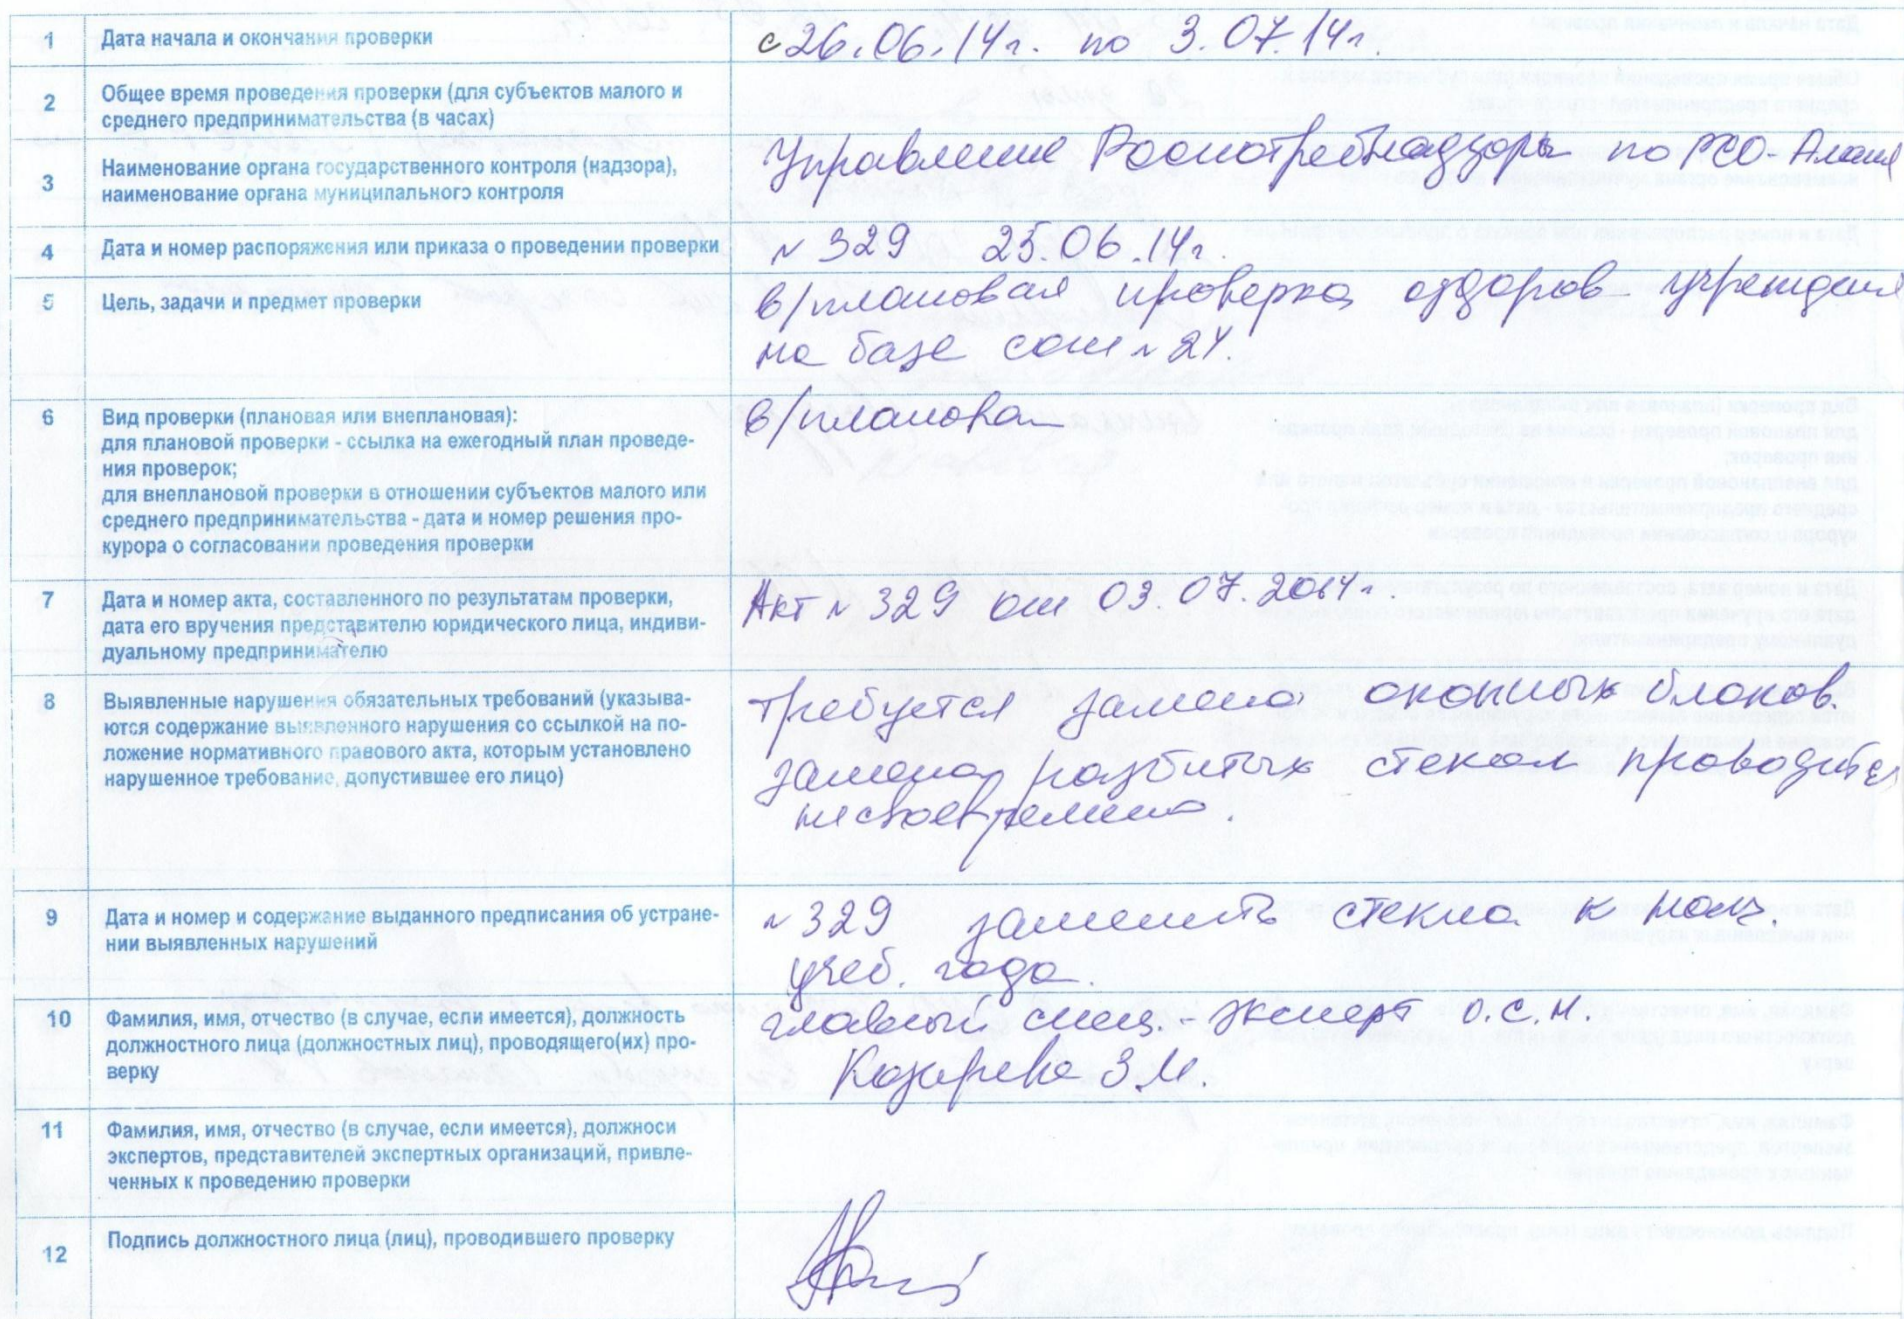 1 Дата начала и окончания проверки с 26.06.14г. по 3.07.14г.
2 Общее время проведения проверки (для субъектов малого и
среднего предпринимательства (в часах)
3 Наименование органа государственного контроля (надзора),
наименование органа муниципального контроля
Управление Роспотребнадзора по РСО-Алания
4 Дата и номер распоряжения или приказа о проведении проверки № 329 25.06.14г.
5 Цель, задачи и предмет проверки в/плановая проверка оздоров. учреждения
на базе сош №24.
6 Вид проверки (плановая или внеплановая): в/плановая
для плановой проверки - ссылка на ежегодный план проведе-
ния проверок;
для внеплановой проверки в отношении субъектов малого или
среднего предпринимательства - дата и номер решения про-
курора о согласовании проведения проверки
7 Дата и номер акта, составленного по результатам проверки,
дата его вручения представителю юридического лица, индиви-
дуальному предпринимателю
Акт № 329 от 03.07.2014г.
8 Выявленные нарушения обязательных требований (указыва-
ются содержание выявленного нарушения со ссылкой на по-
ложение нормативного правового акта, которым установлено
нарушенное требование, допустившее его лицо)
Требуется замена оконных блоков.
замена разбитых стекол проводится
несвоевременно.
9 Дата и номер и содержание выданного предписания об устране-
нии выявленных нарушений
№329 заменить стекла к нач.
учеб. года.
10 Фамилия, имя, отчество (в случае, если имеется), должность
должностного лица (должностных лиц), проводящего(их) про-
верку
главный спец.-эксперт о.с.н.
Казарева З.М.
11 Фамилия, имя, отчество (в случае, если имеется), должноси
экспертов, представителей экспертных организаций, привле-
ченных к проведению проверки
12 Подпись должностного лица (лиц), проводившего проверку